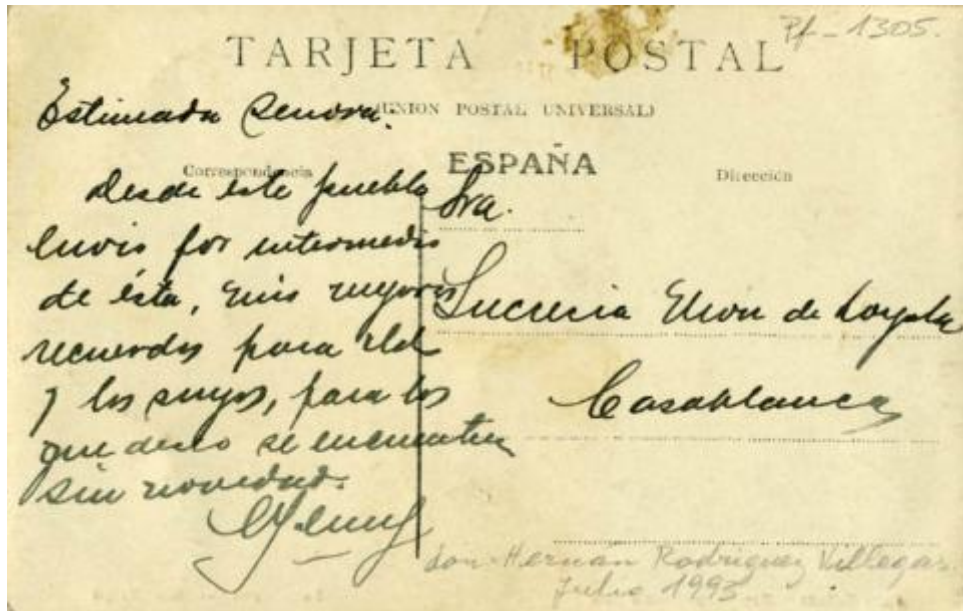 Pf-1305.
TARJETA POSTAL
(UNION POSTAL UNIVERSAL)
ESPAÑA
Correspondencia
Dirección
Estimada Senora:
Desde este pueblo
envio por intermedio
de ésta, mis mejores
recuerdos para Ud
y los suyos, para los
que deseo se encuentren
sin novedad.
Sra.
Lucrecia de Loyola
Casablanca
don Hernán Rodríguez Villegas.
Julio 1993